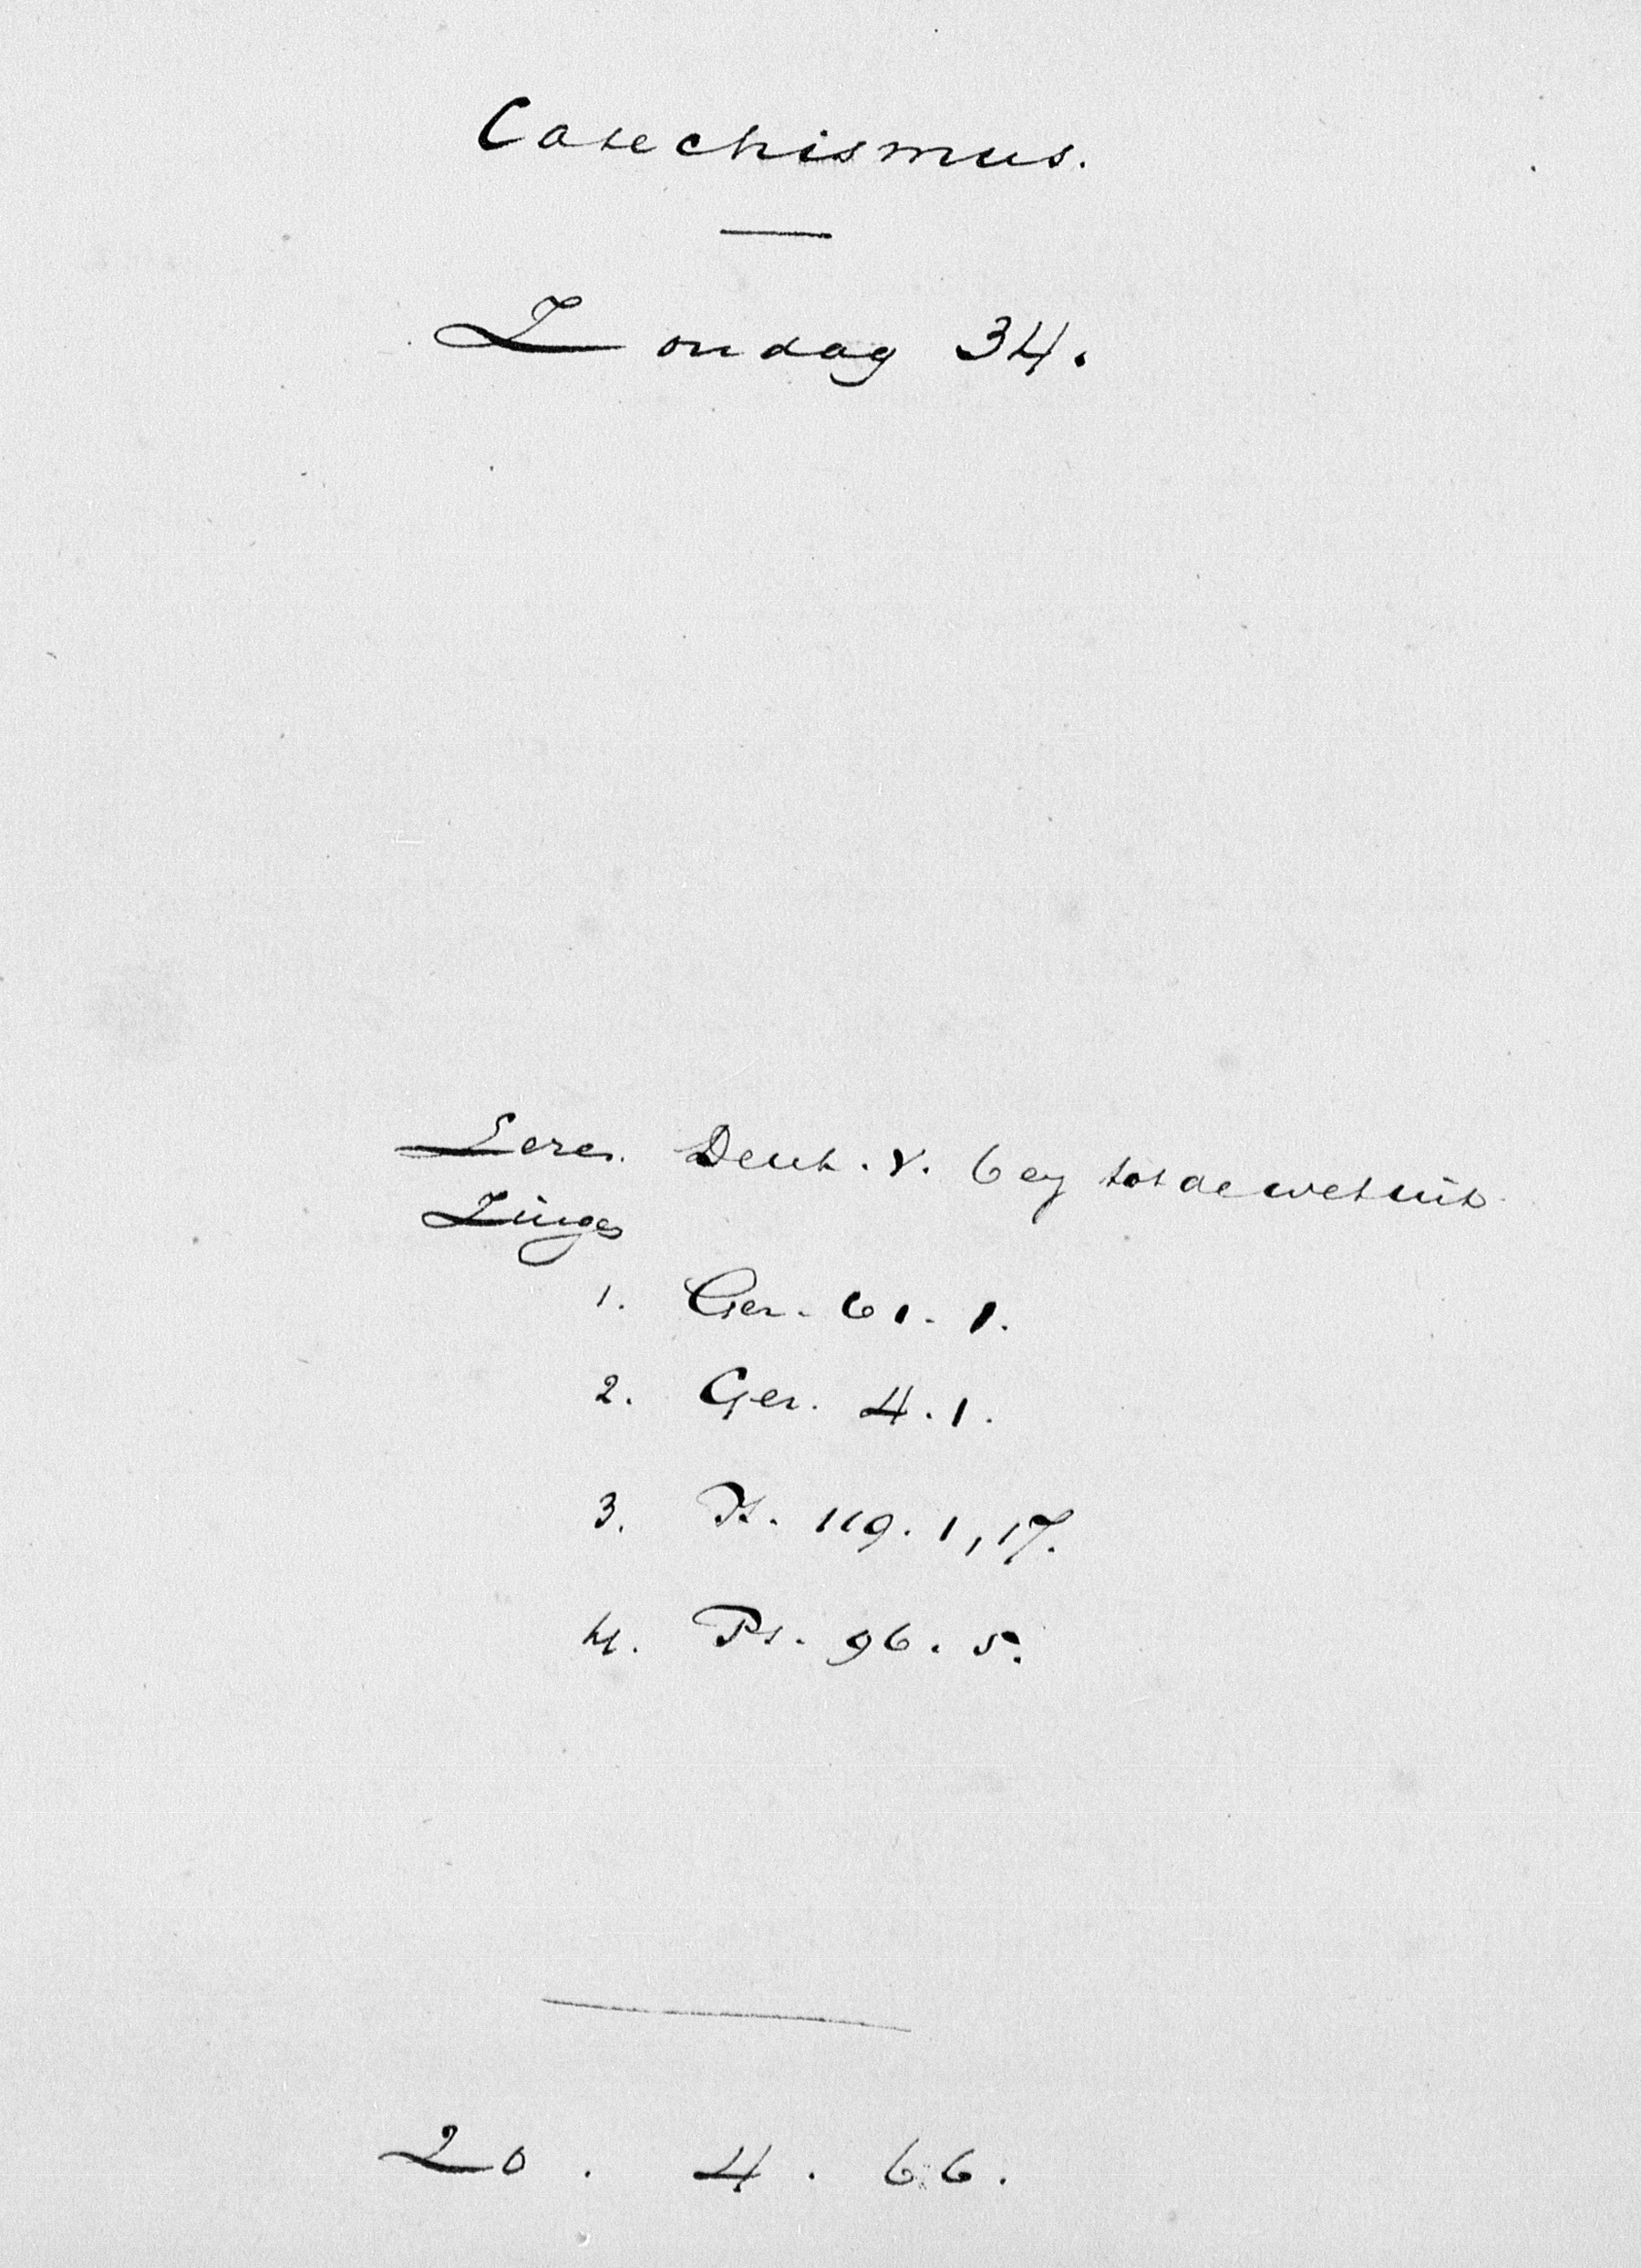 Catechismus.
Zondag 34.
Lezen. Deut. V. 6 en tot de wet uit.
Zingen
1. Gez. 61. 1.
2. Gez. 4. 1.
3. Ps. 119. 1, 17.
4. Ps. 96. 5.
20. 4. 66.